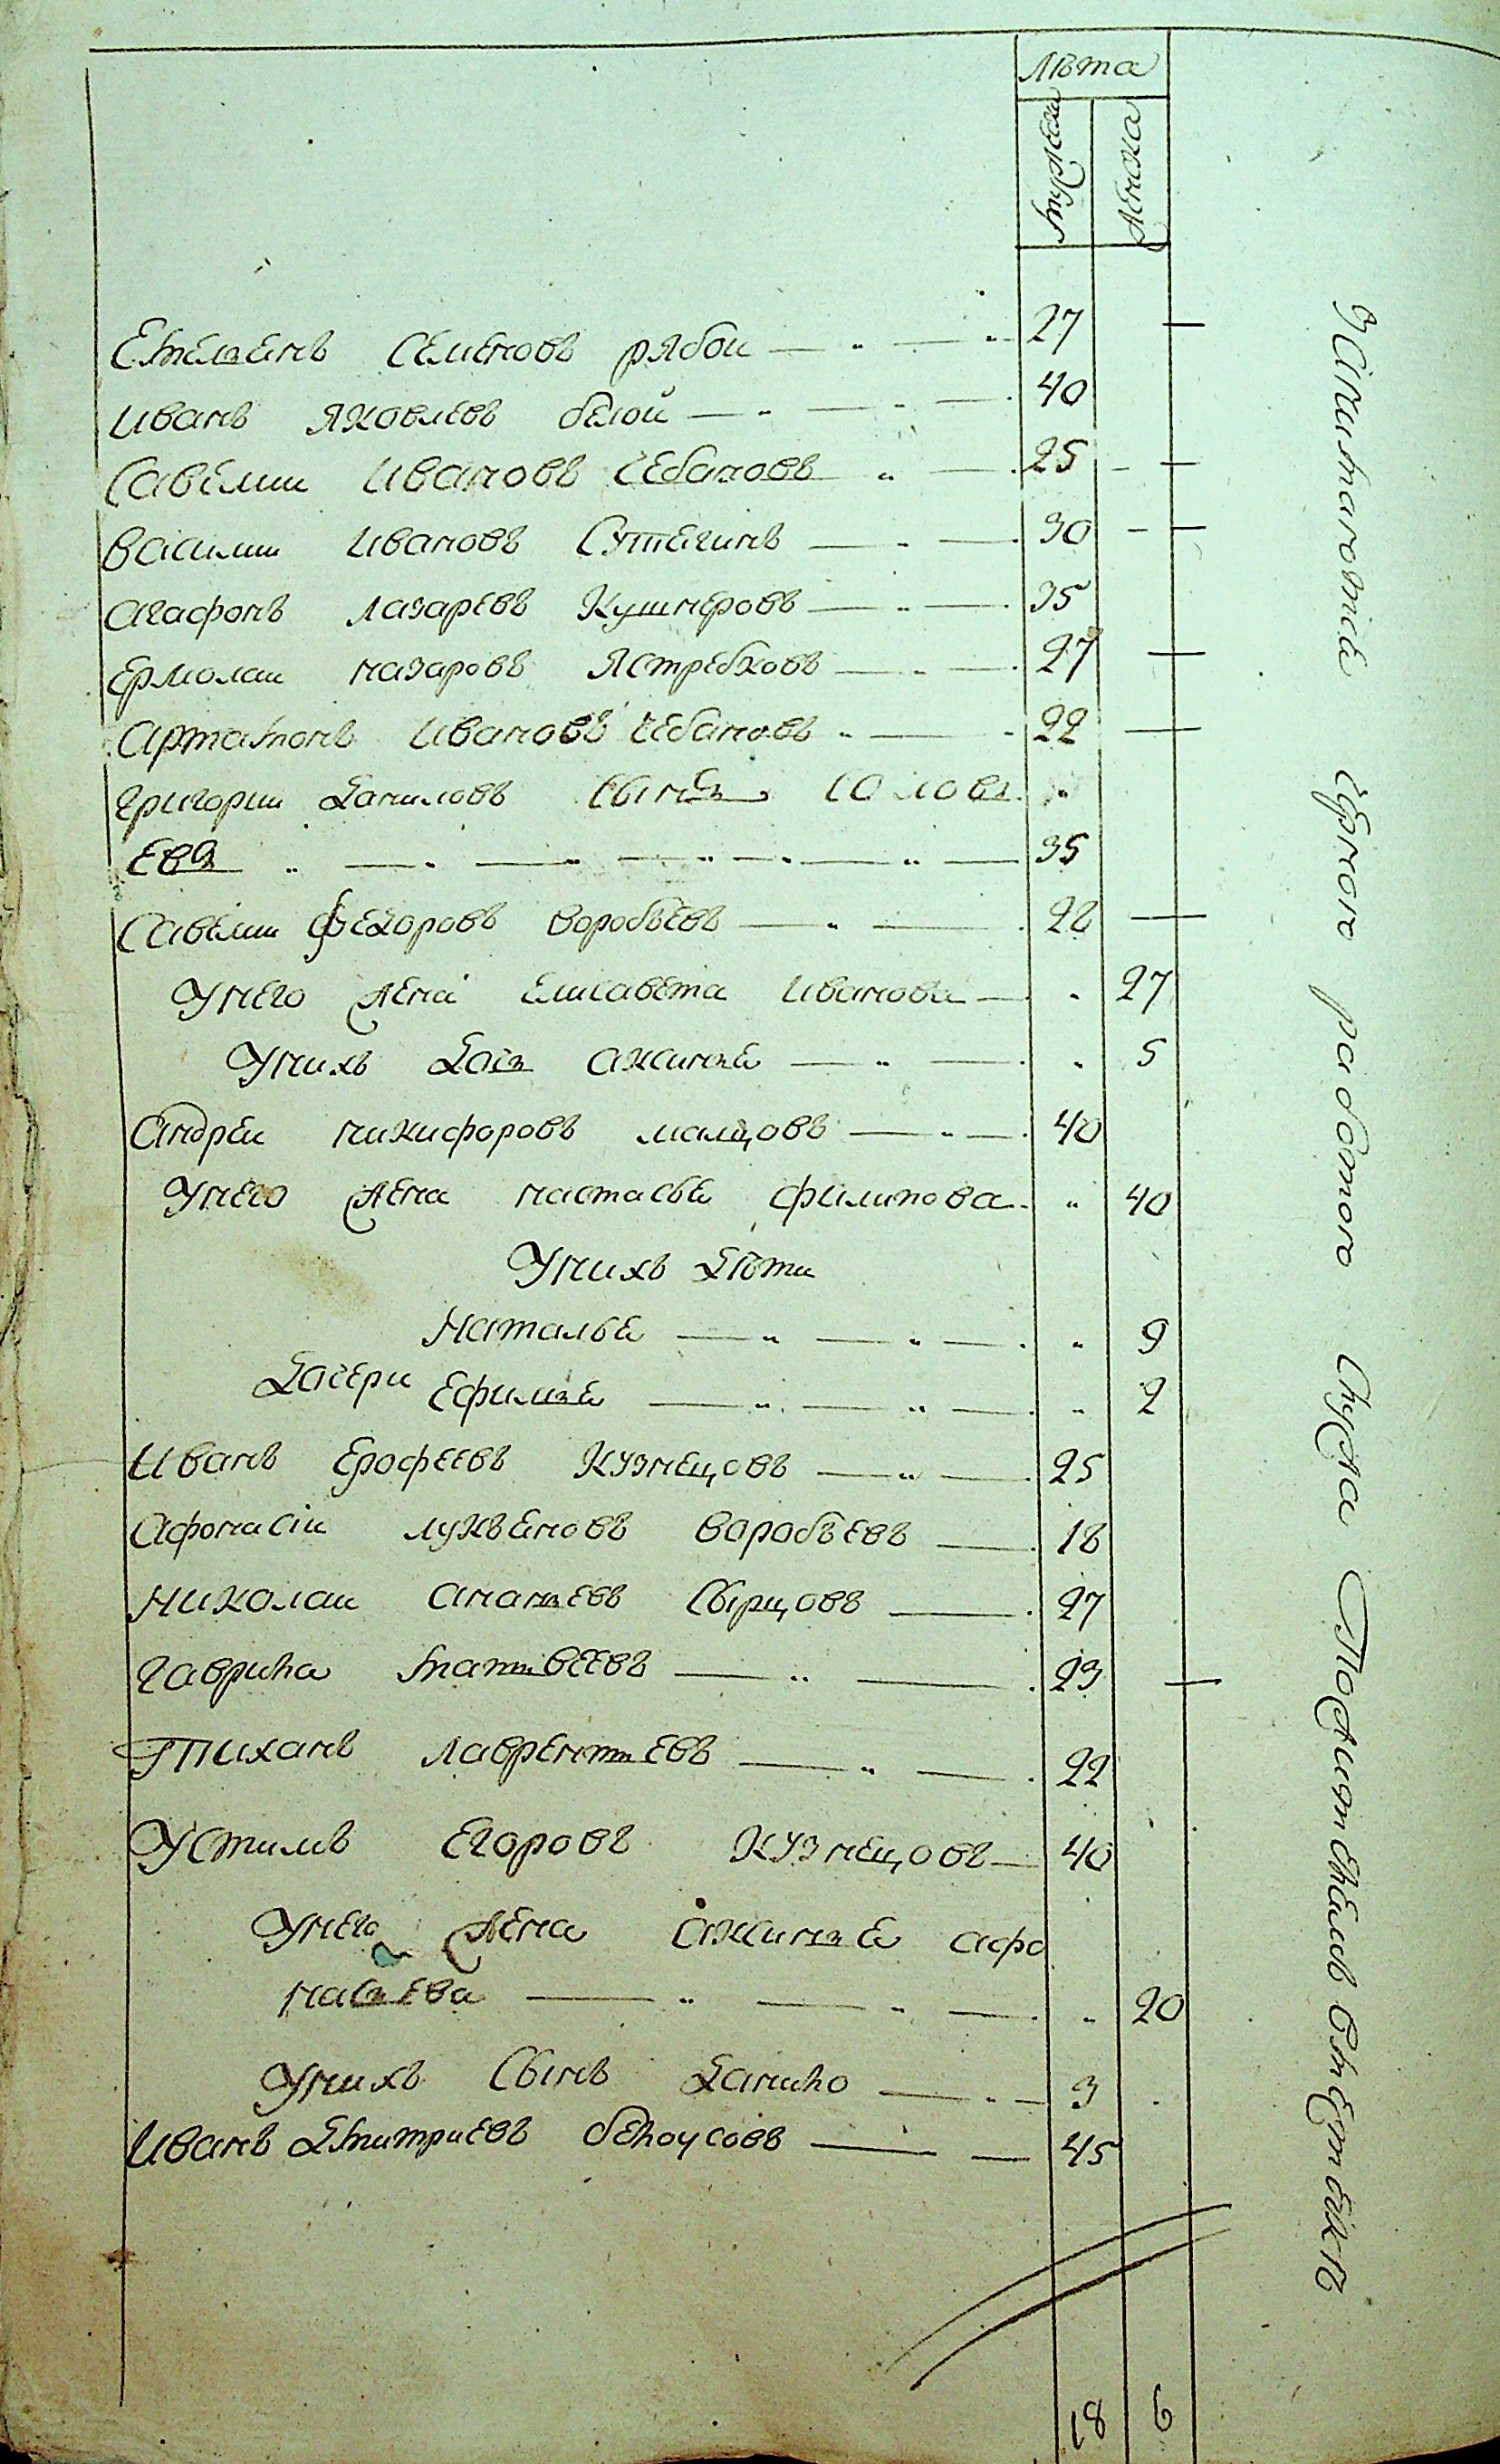 Лѣта
Мужеска
Женска
Емельянъ Семеновъ рябои 27
Иванъ Яковлевъ белой 40
Савелии Ивановъ Чебановъ 25
Василии Ивановъ Сутягинъ 30
Агафонъ Лазаревъ Кушнеровъ 35
Ермолаи назаровъ Ястребковъ 27
Артамонъ Ивановъ Чебановъ 22
Григории Даниловъ Сынъ Соловь
Евъ 35
Савелии Федоровъ Воробьевъ 28
У него жена Елисавета Иванова 27
У нихъ Дочь Аксинья 5
Андреи никифоровъ малцовъ 40
У него жена настасья Филипова 40
У нихъ Дѣти
Наталья 9
Дочери Ефимья 2
Иванъ Ерофеевъ Кузнецовъ 25
Афонасіи Лукьяновъ Воробьевъ 18
Николаи Ананьевъ Сырцовъ 27
Гаврила Матвеевъ 23
Тиханъ Лаврентьевъ 22
Устимъ Егоровъ Кузнецовъ 40
У него жена Аксинья Афо
насьева 20
У нихъ Сынъ Данило 3
Иванъ Дмитриевъ белоусовъ 45
18 6
Капитаномъ черного работного Служа Положителемъ